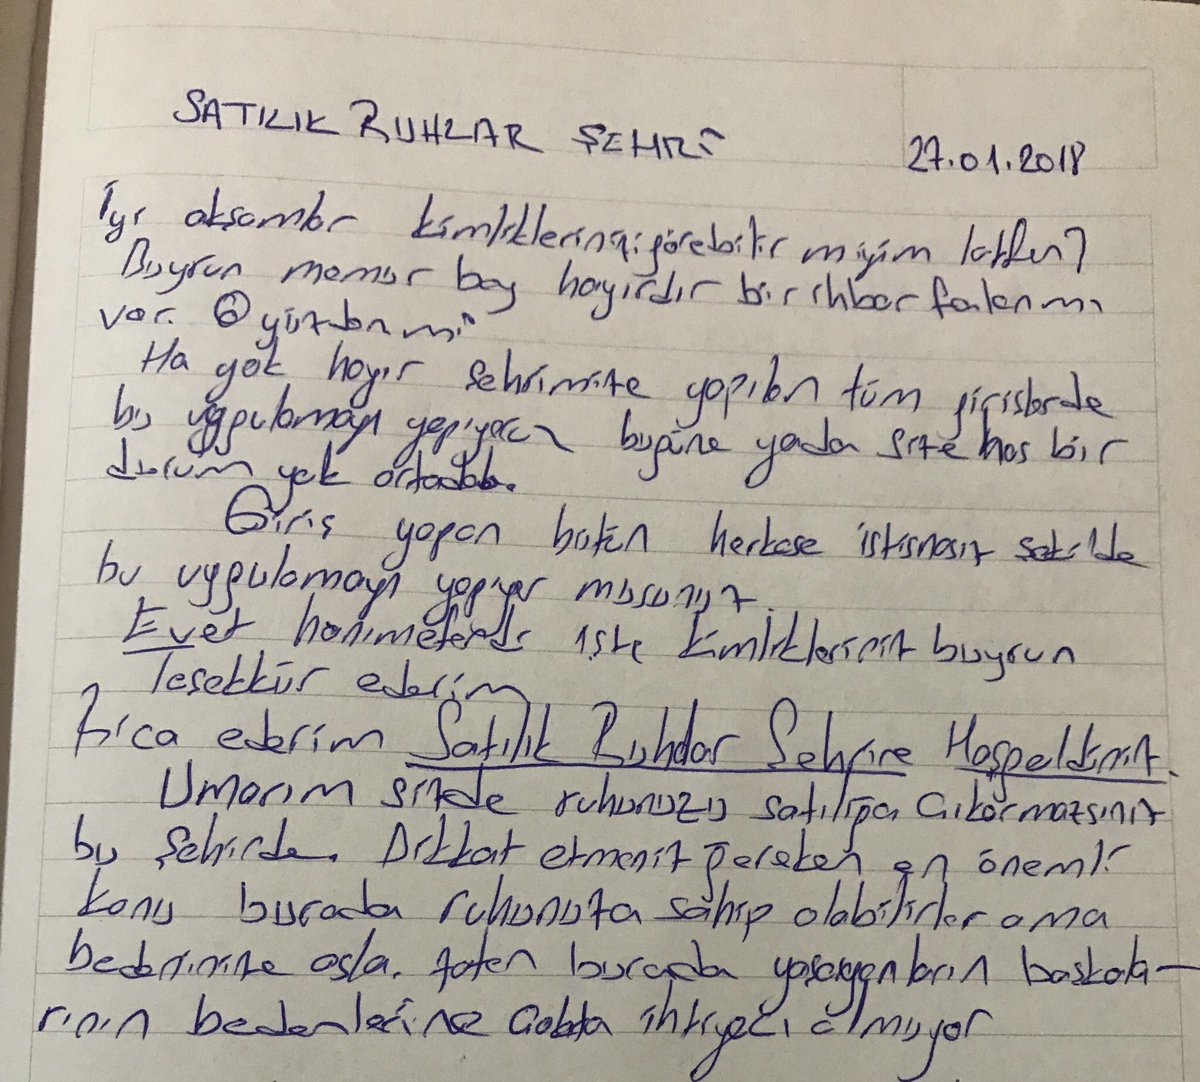 SATILIK RUHLAR ŞEHRİ
27.01.2018
İyi akşamlar kimliklerinizi görebilir miyim lütfen?
Buyrun memur bey hayırdır bir ihbar falanmı
var. O yüzden mi
Ha yok hayır şehrimize yapılan tüm girişlerde
bu uygulamayı yapıyoruz bugüne yada size has bir
durum yok ortada.
Giriş yapan bütün herkese istisnasız şekilde
bu uygulamayı yapıyor musunuz.
Evet hanımefendi işte kimlikleriniz buyrun
Teşekkür ederim
Rica ederim Satılık Ruhlar Şehrine Hoşgeldiniz.
Umarım sizde ruhunuzu satılığa Çıkarmazsınız
bu şehirde. Dikkat etmeniz gereken en önemli
konu burada ruhunuza sahip olabilirler ama
bedeninize asla. zaten burada yaşayanların başkala-
rının bedenlerine Çokta ihtiyacı olmuyor